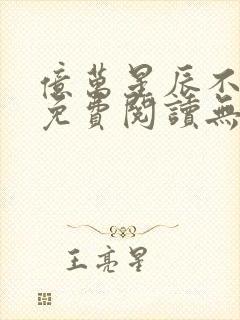 億萬星辰不
免費閱讀無
王亮星